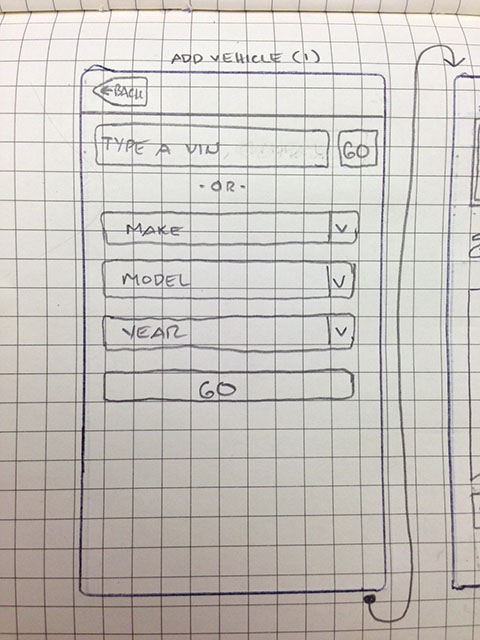 ADD VEHICLE (1)
BACK
TYPE A VIN GO
- OR -
MAKE V
MODEL V
YEAR V
GO